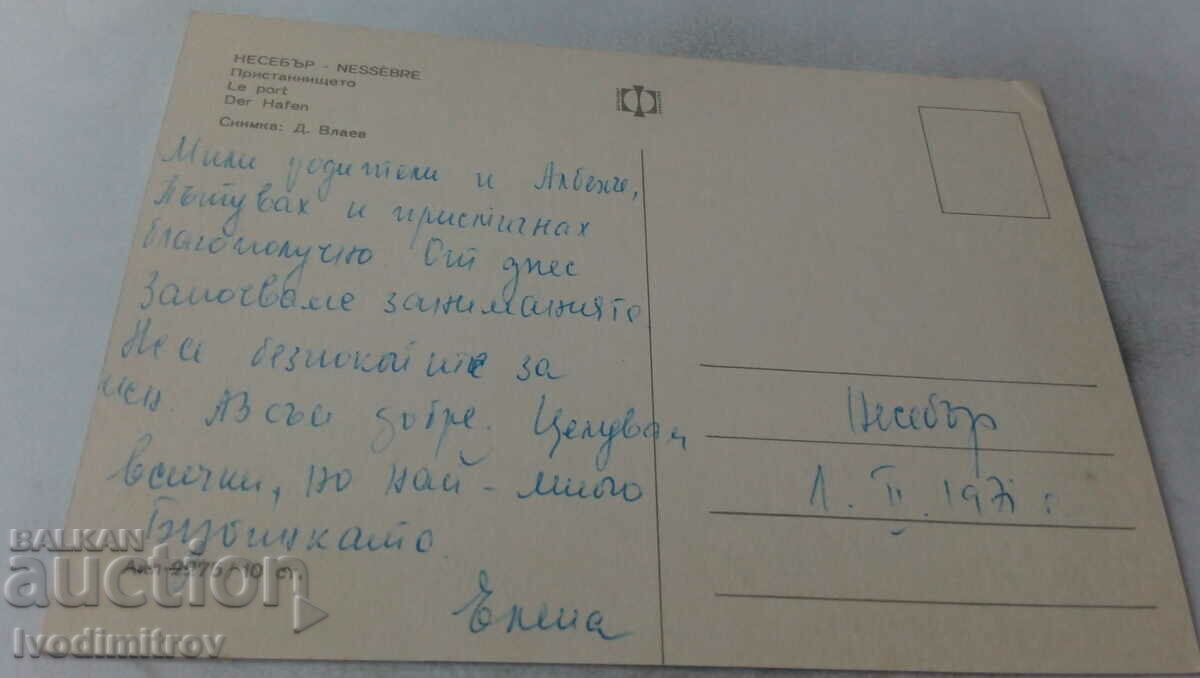 НЕСЕБЪР - NESSÈBRE
Пристанището
Le port
Der Hafen
Снимка: Д. Влаев
Мили родители и
Пътувах и пристигнах
благополучно От днес
Започваме заниманията
Не се безпокойте за
мен. Аз съм добре. Целувам
всички, но най-много
Елена
Несебър
1. II. 1971 г.
BALKAN
auction
Ivodimitrov